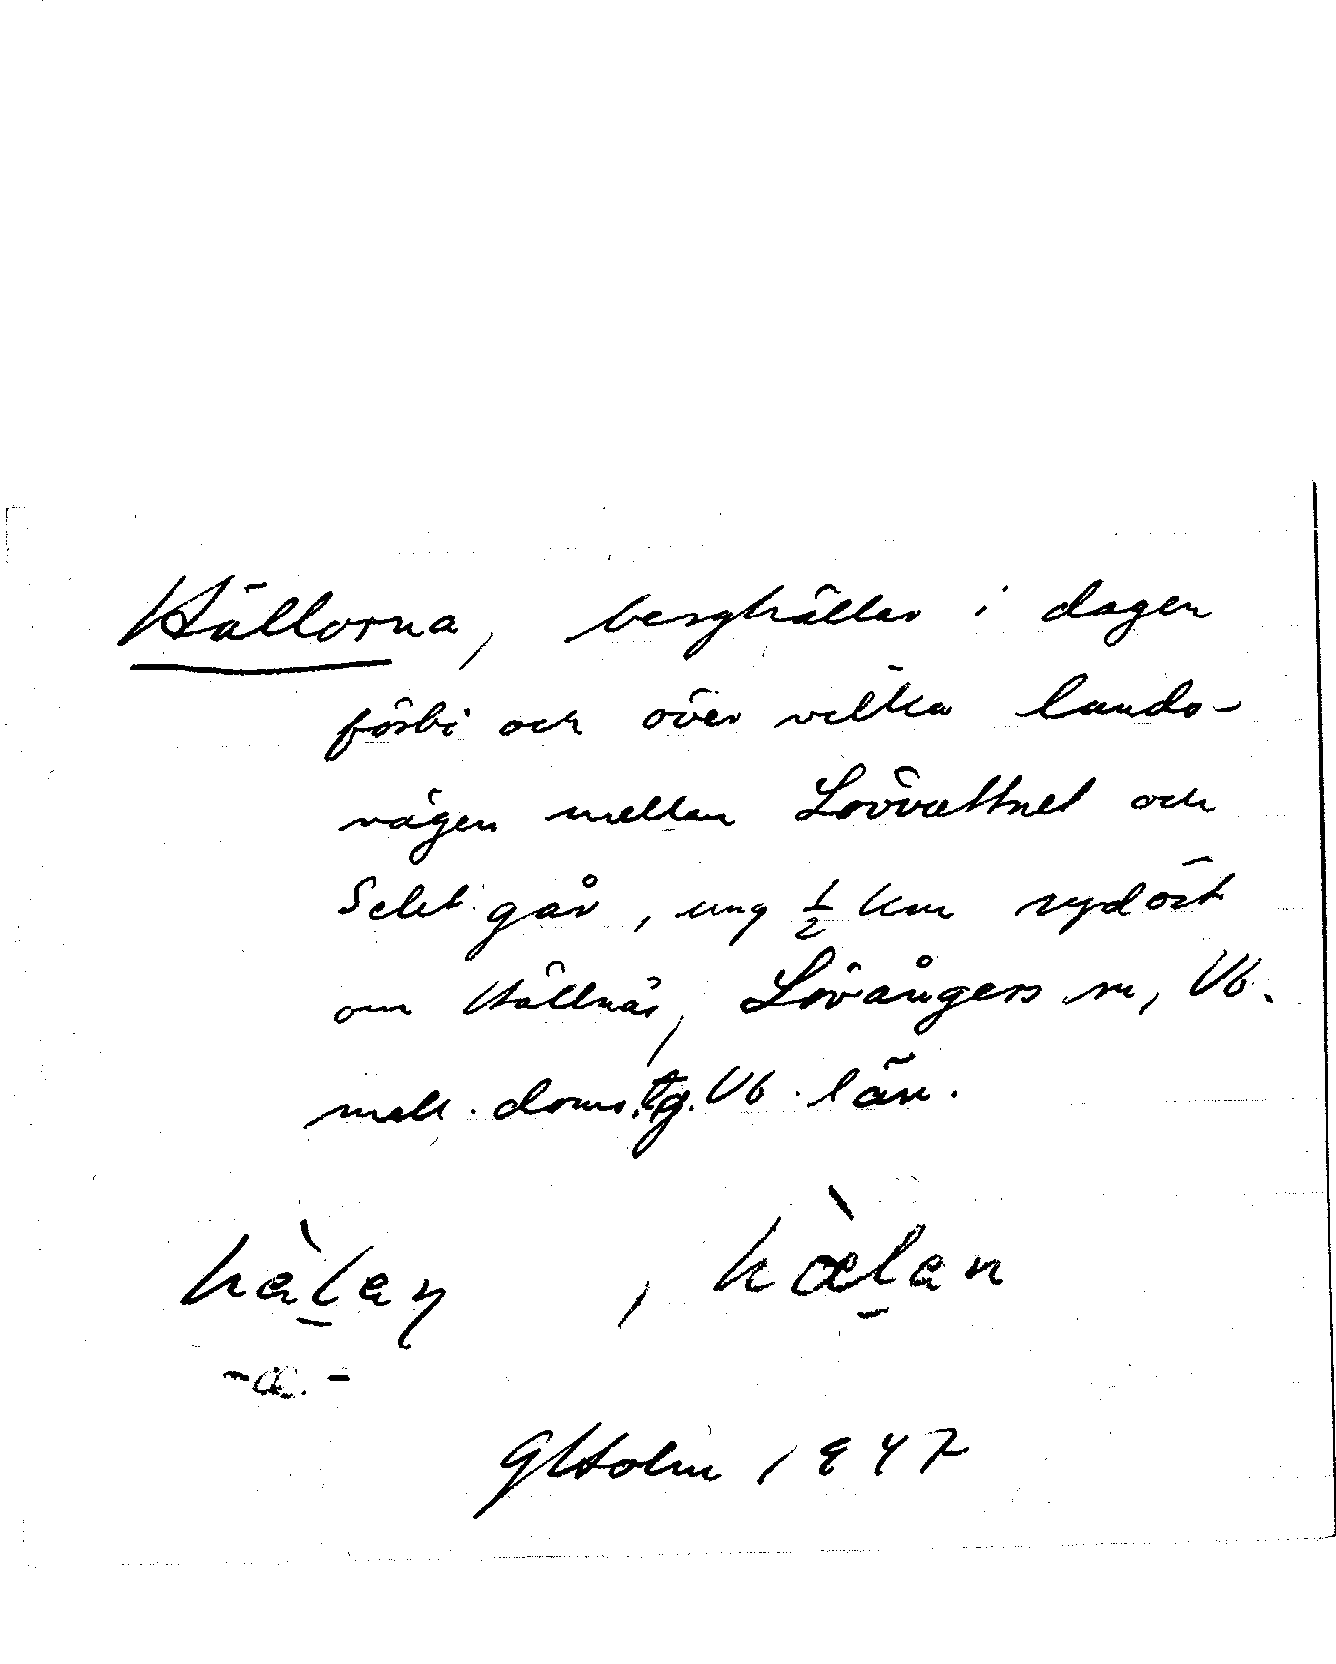 Hällorna, berghällar i dagen
förbi och över vilka lands-
vägen mellan Lövvattnet och
Selet går, ung ½ km sydöst
om Hällnäs, Lövångers sn, Vb.
mell. doms.tg. Vb. län.
hàl̠aŋ , hæ̀l̠an
-æ.-
GHolm 1947